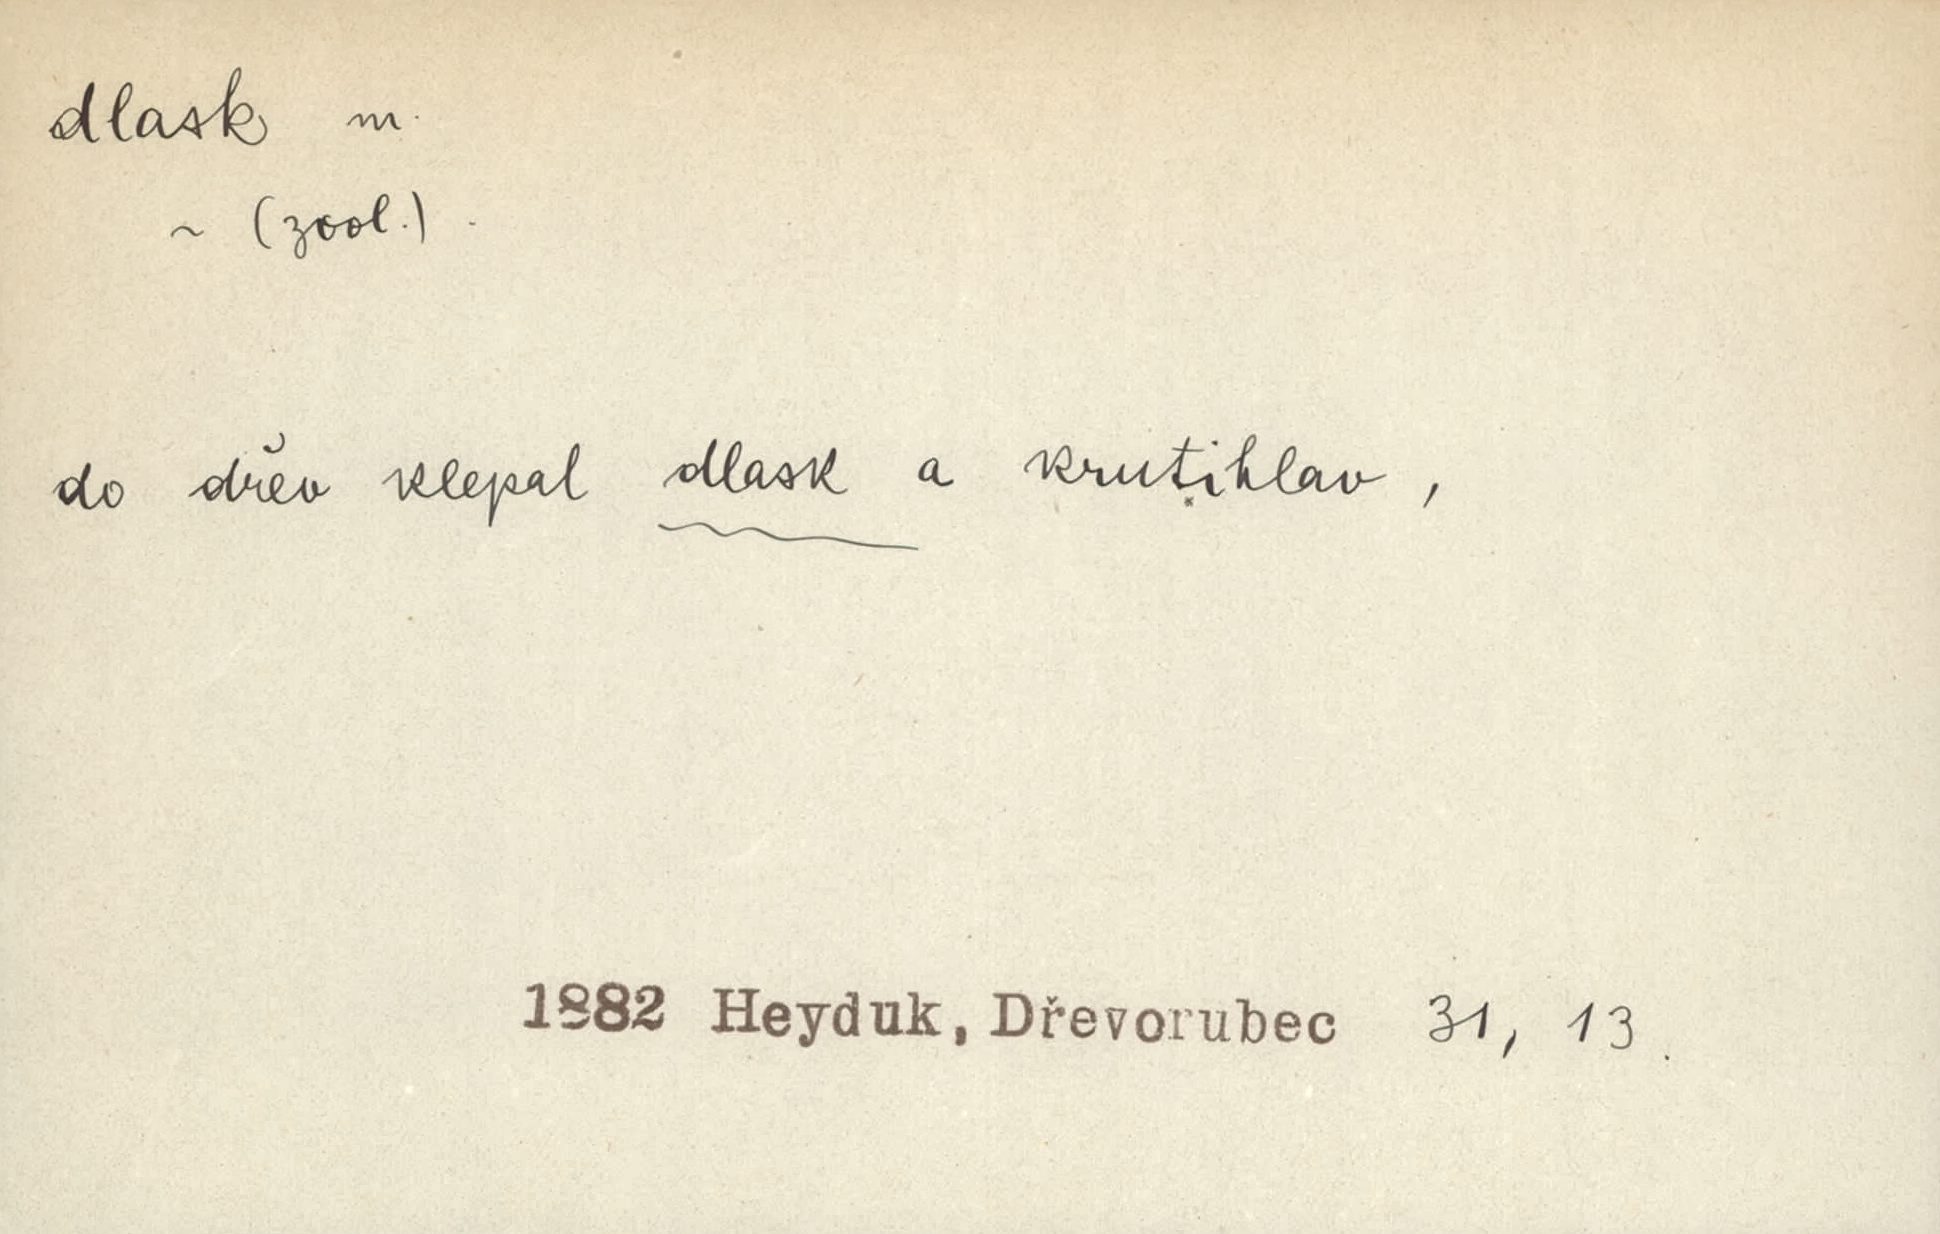 dlask m.
~ (zool.)
do dřev klepal dlask a krutihlav,
1882 Heyduk, Dřevorubec 31, 13.